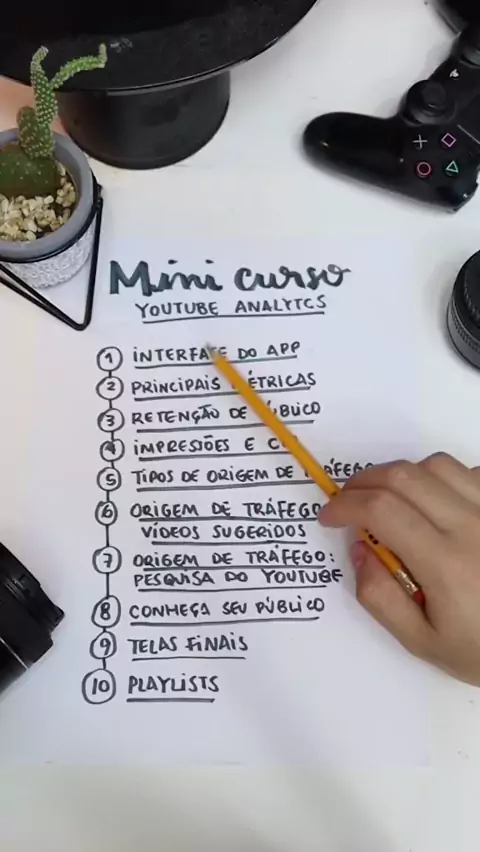 Mini curso
YOUTUBE ANALYTCS
1 INTERFACE DO APP
2 PRINCIPAIS ÉTRICAS
3 RETENÇÃO DE PÚBLICO
4 IMPRESSÕES E C
5 TIPOS DE ORIGEM DE TRÁFEGO
6 ORIGEM DE TRÁFEGO
VÍDEOS SUGERIDOS
7 ORIGEM DE TRÁFEGO:
PESQUISA DO YOUTUBE
8 CONHEÇA SEU PÚBLICO
9 TELAS FINAIS
10 PLAYLISTS